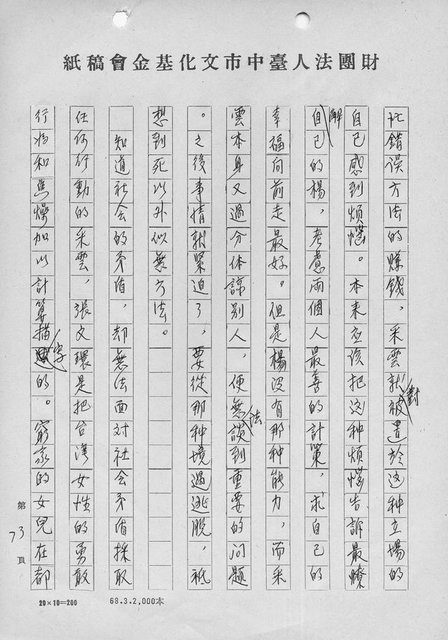 財團法人臺中市文化基金會稿紙
此錯誤方法的賺錢，采雲就被遣於這种立場的
對
自己感到煩惱。本來应該把这种煩惱告訴最瞭
解自己的楊，考慮兩個人最善的計策，求自己的
幸福向前走最好。但是楊没有那种能力，而采
雲本身又過分体諒別人，便無談到重要的问題
法
。之後事情就緊迫了，要從那种境遇逃脱，祗
想到死以外似無方法。
知道社会的矛盾，却無法面对社会矛盾採取
任何行動的采雲，張文環是把台灣女性的勇敢
行為和焦燥加以計算描的。窮家的女兒在都
字
第73頁
20×10=200
68.3.2,000本